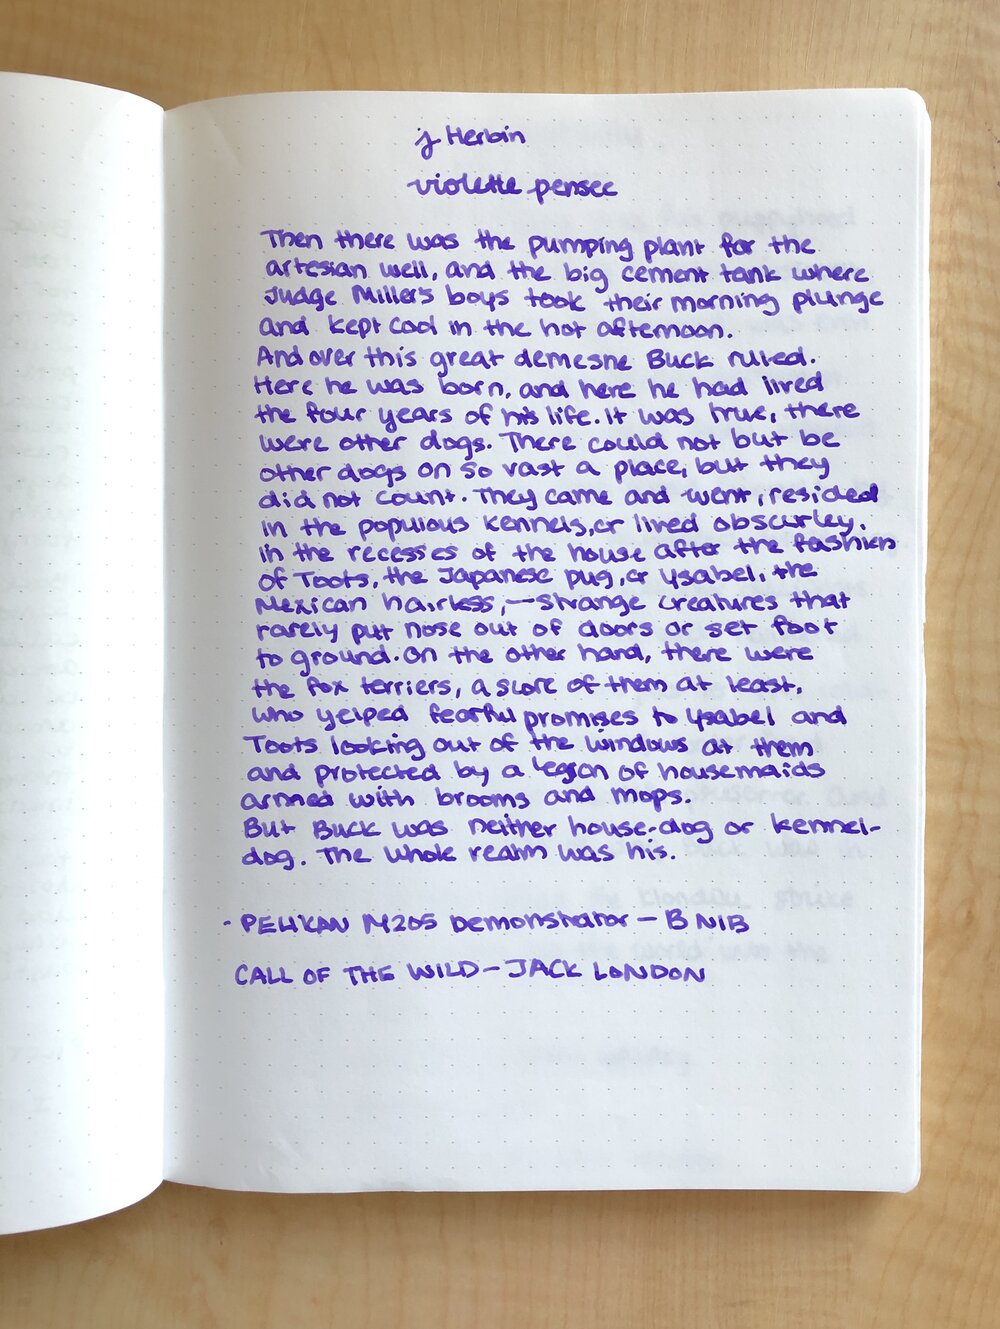 j Herbin
violette pensee
Then there was the pumping plant for the
artesian well, and the big cement tank where
Judge Miller's boys took their morning plunge
and kept cool in the hot afternoon.
And over this great demesne Buck ruled.
Here he was born, and here he had lived
the four years of his life. It was true, there
were other dogs. There could not but be
other dogs on so vast a place, but they
did not count. They came and went, resided
in the populous kennels, or lived obscurley.
in the recesses of the house after the fashion
of Toots, the Japanese pug, or Ysabel, the
Mexican hairless,—strange creatures that
rarely put nose out of doors or set foot
to ground. On the other hand, there were
the fox terriers, a score of them at least,
who yelped fearful promises to Ysabel and
Toots looking out of the windows at them
and protected by a legion of housemaids
armed with brooms and mops.
But Buck was neither house-dog or kennel-
dog. The whole realm was his.
- PELIKAN M205 Demonstrator - B NIB
CALL OF THE WILD - JACK LONDON